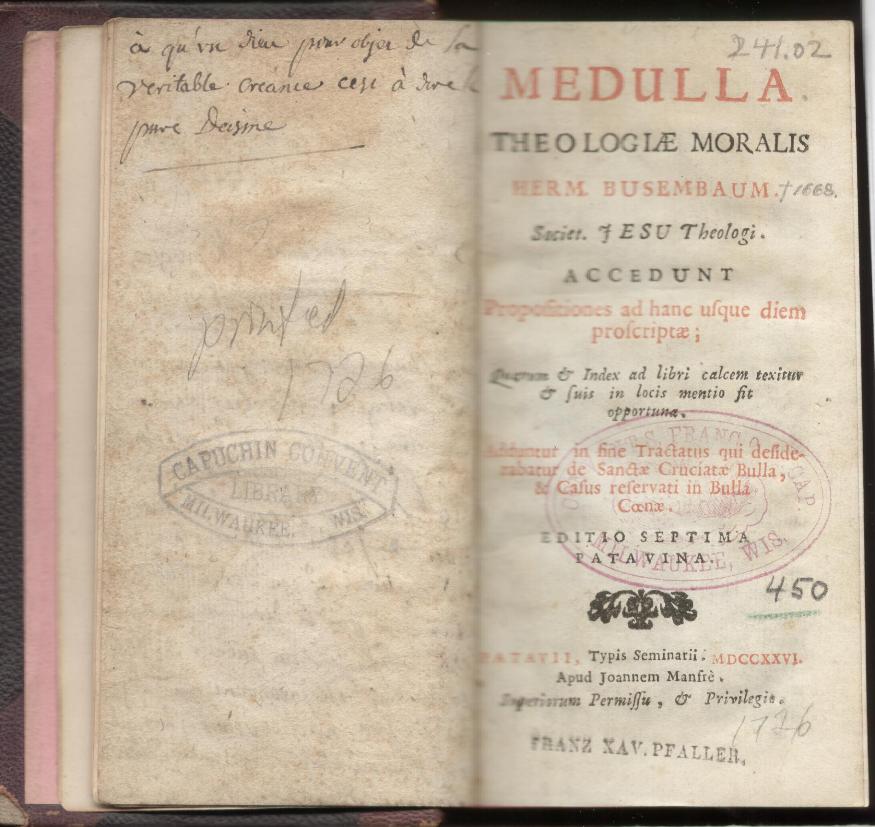 à qu'vn dieu pour objet de sa
veritable creance cest à dire le
pure Deisme
printed
1726
CAPUCHIN CONVENT
LIBRARY
MILWAUKEE, WIS.
241.02
MEDULLA
THEOLOGIÆ MORALIS
HERM. BUSEMBAUM. †1668.
Societ. JESU Theologi.
ACCEDUNT
Propositiones ad hanc uſque diem
proſcriptæ;
Quarum & Index ad libri calcem texitur
& ſuis in locis mentio fit
opportuna.
Adduntur in fine Tractatus qui deſide-
rabatur de Sanctæ Cruciatæ Bulla,
& Caſus reſervati in Bulla
Cœnæ.
FRANC. CAP
MILWAUKEE, WIS.
EDITIO SEPTIMA
PATAVINA.
450
PATAVII, Typis Seminarii. MDCCXXVI.
Apud Joannem Manfrè.
Superiorum Permiſſu, & Privilegio.
1726
FRANZ XAV. PFALLER.